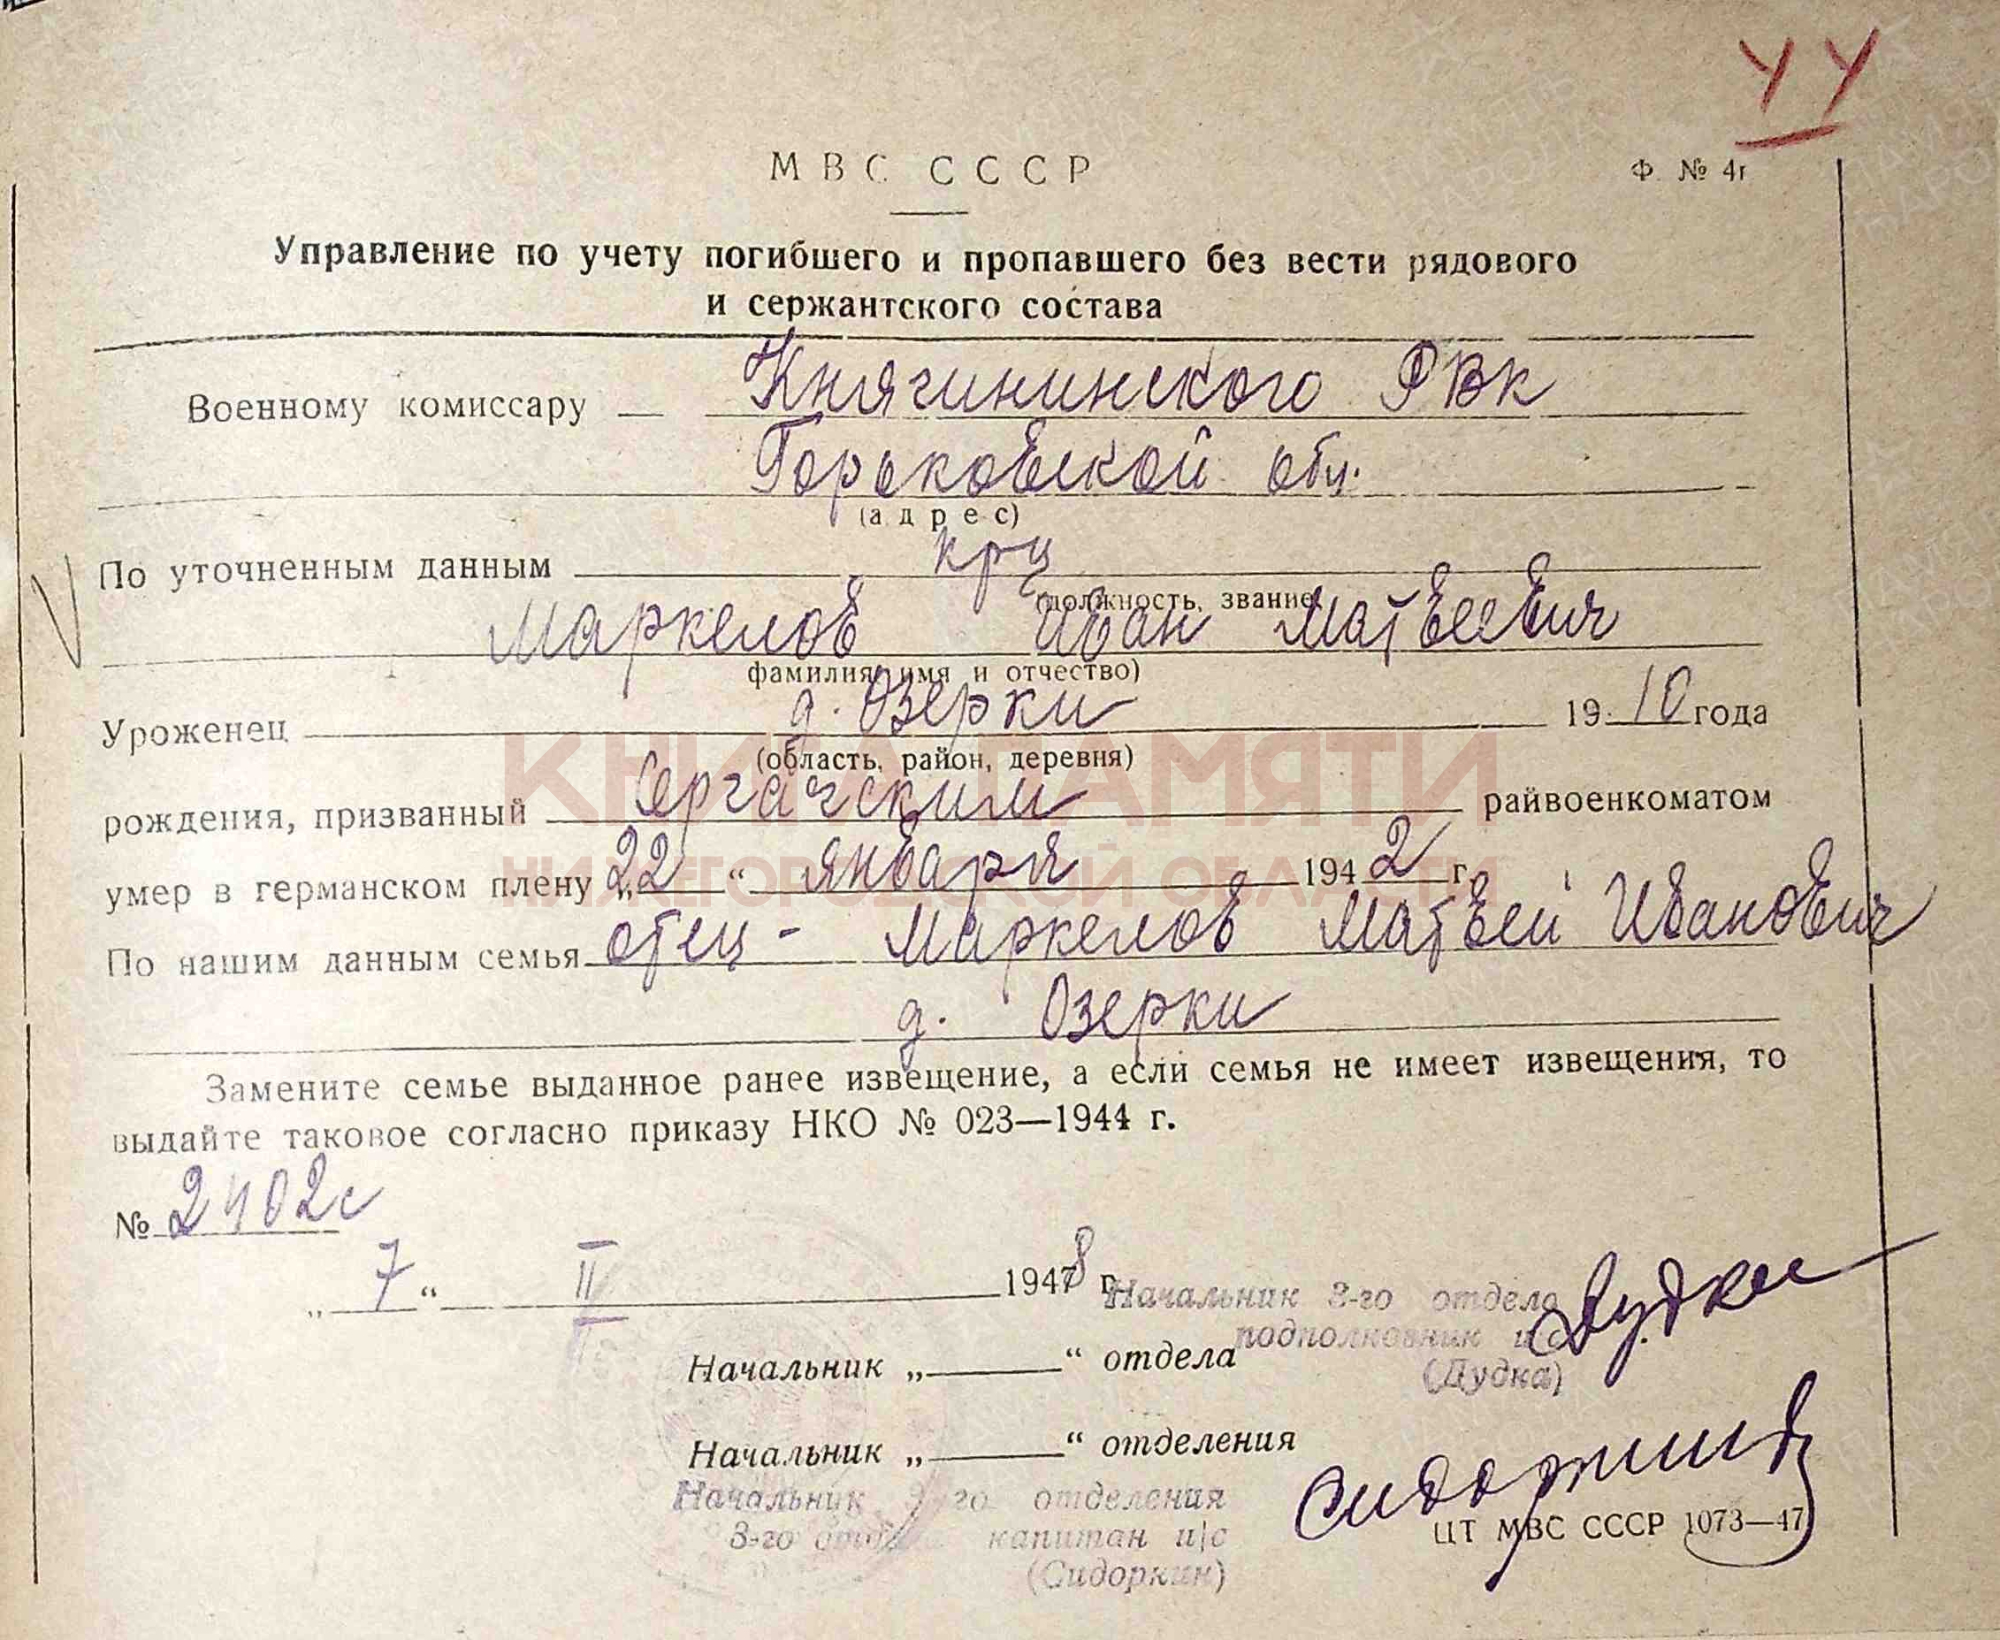 УУ
МВС СССР
Ф. № 4г
Управление по учету погибшего и пропавшего без вести рядового
и сержантского состава
Военному комиссару — Княгининского РВК
Горьковской обл.
(адрес)
По уточненным данным крц
(должность, звание
Маркелов Иван Матвеевич
фамилия, имя и отчество)
Уроженец д. Озерки 1910 года
(область, район, деревня)
рождения, призванный Сергачским райвоенкоматом
умер в германском плену „22“ января 1942 г.
По нашим данным семья отец - Маркелов Матвей Иванович
д. Озерки
Замените семье выданное ранее извещение, а если семья не имеет извещения, то
выдайте таковое согласно приказу НКО № 023—1944 г.
№ 2402с
„7“ II 1948 г.
Начальник 3-го отдела
подполковник и/с
Начальник „ “ отдела
(Дудка)
Дудка
Начальник „ “ отделения
Начальник го отделения
3-го отдела капитан и/с
(Сидоркин)
Сидоркин
ЦТ МВС СССР 1073—47
КНИГА ПАМЯТИ
НИЖЕГОРОДСКОЙ ОБЛАСТИ